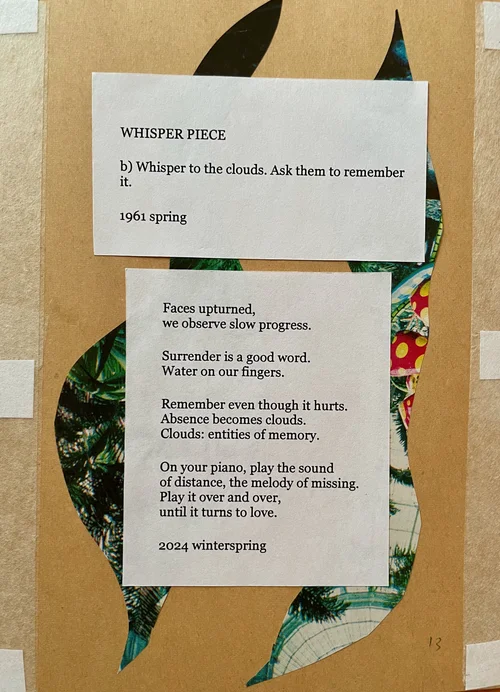 WHISPER PIECE
b) Whisper to the clouds. Ask them to remember
it.
1961 spring
Faces upturned,
we observe slow progress.
Surrender is a good word.
Water on our fingers.
Remember even though it hurts.
Absence becomes clouds.
Clouds: entities of memory.
On your piano, play the sound
of distance, the melody of missing.
Play it over and over,
until it turns to love.
2024 winterspring
13